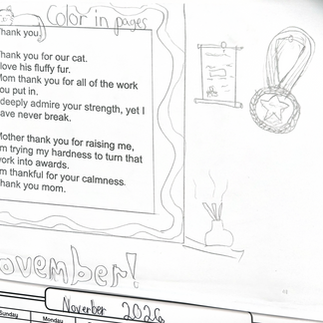 Color in pages
hank you.
hank you for our cat.
love his fluffy fur.
Mom thank you for all of the work
ou put in.
deeply admire your strength, yet I
ave never break.
Mother thank you for raising me,
m trying my hardness to turn that
ork into awards.
m thankful for your calmness.
hank you mom.
ovember!
November 2026
Sunday Monday